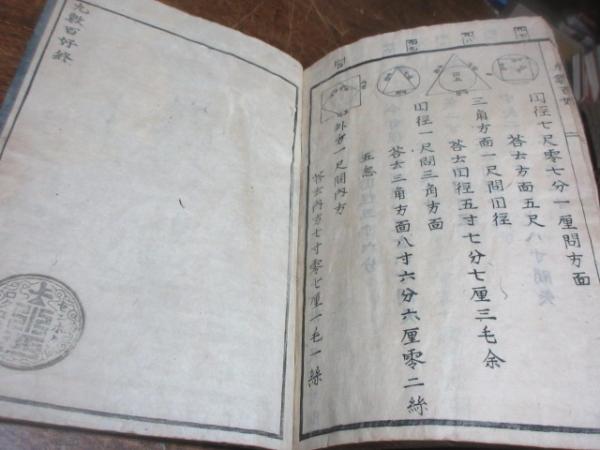 円径七尺零七分一厘問方面
答云方面五尺
三角方面一尺問円径
答云円径五寸七分七厘三毛余
円径一尺問三角方面
答云三角方面八寸六分六厘零二絲
五忽
外方一尺問内方
答云内方七寸零七厘一毛一絲
九數百好終